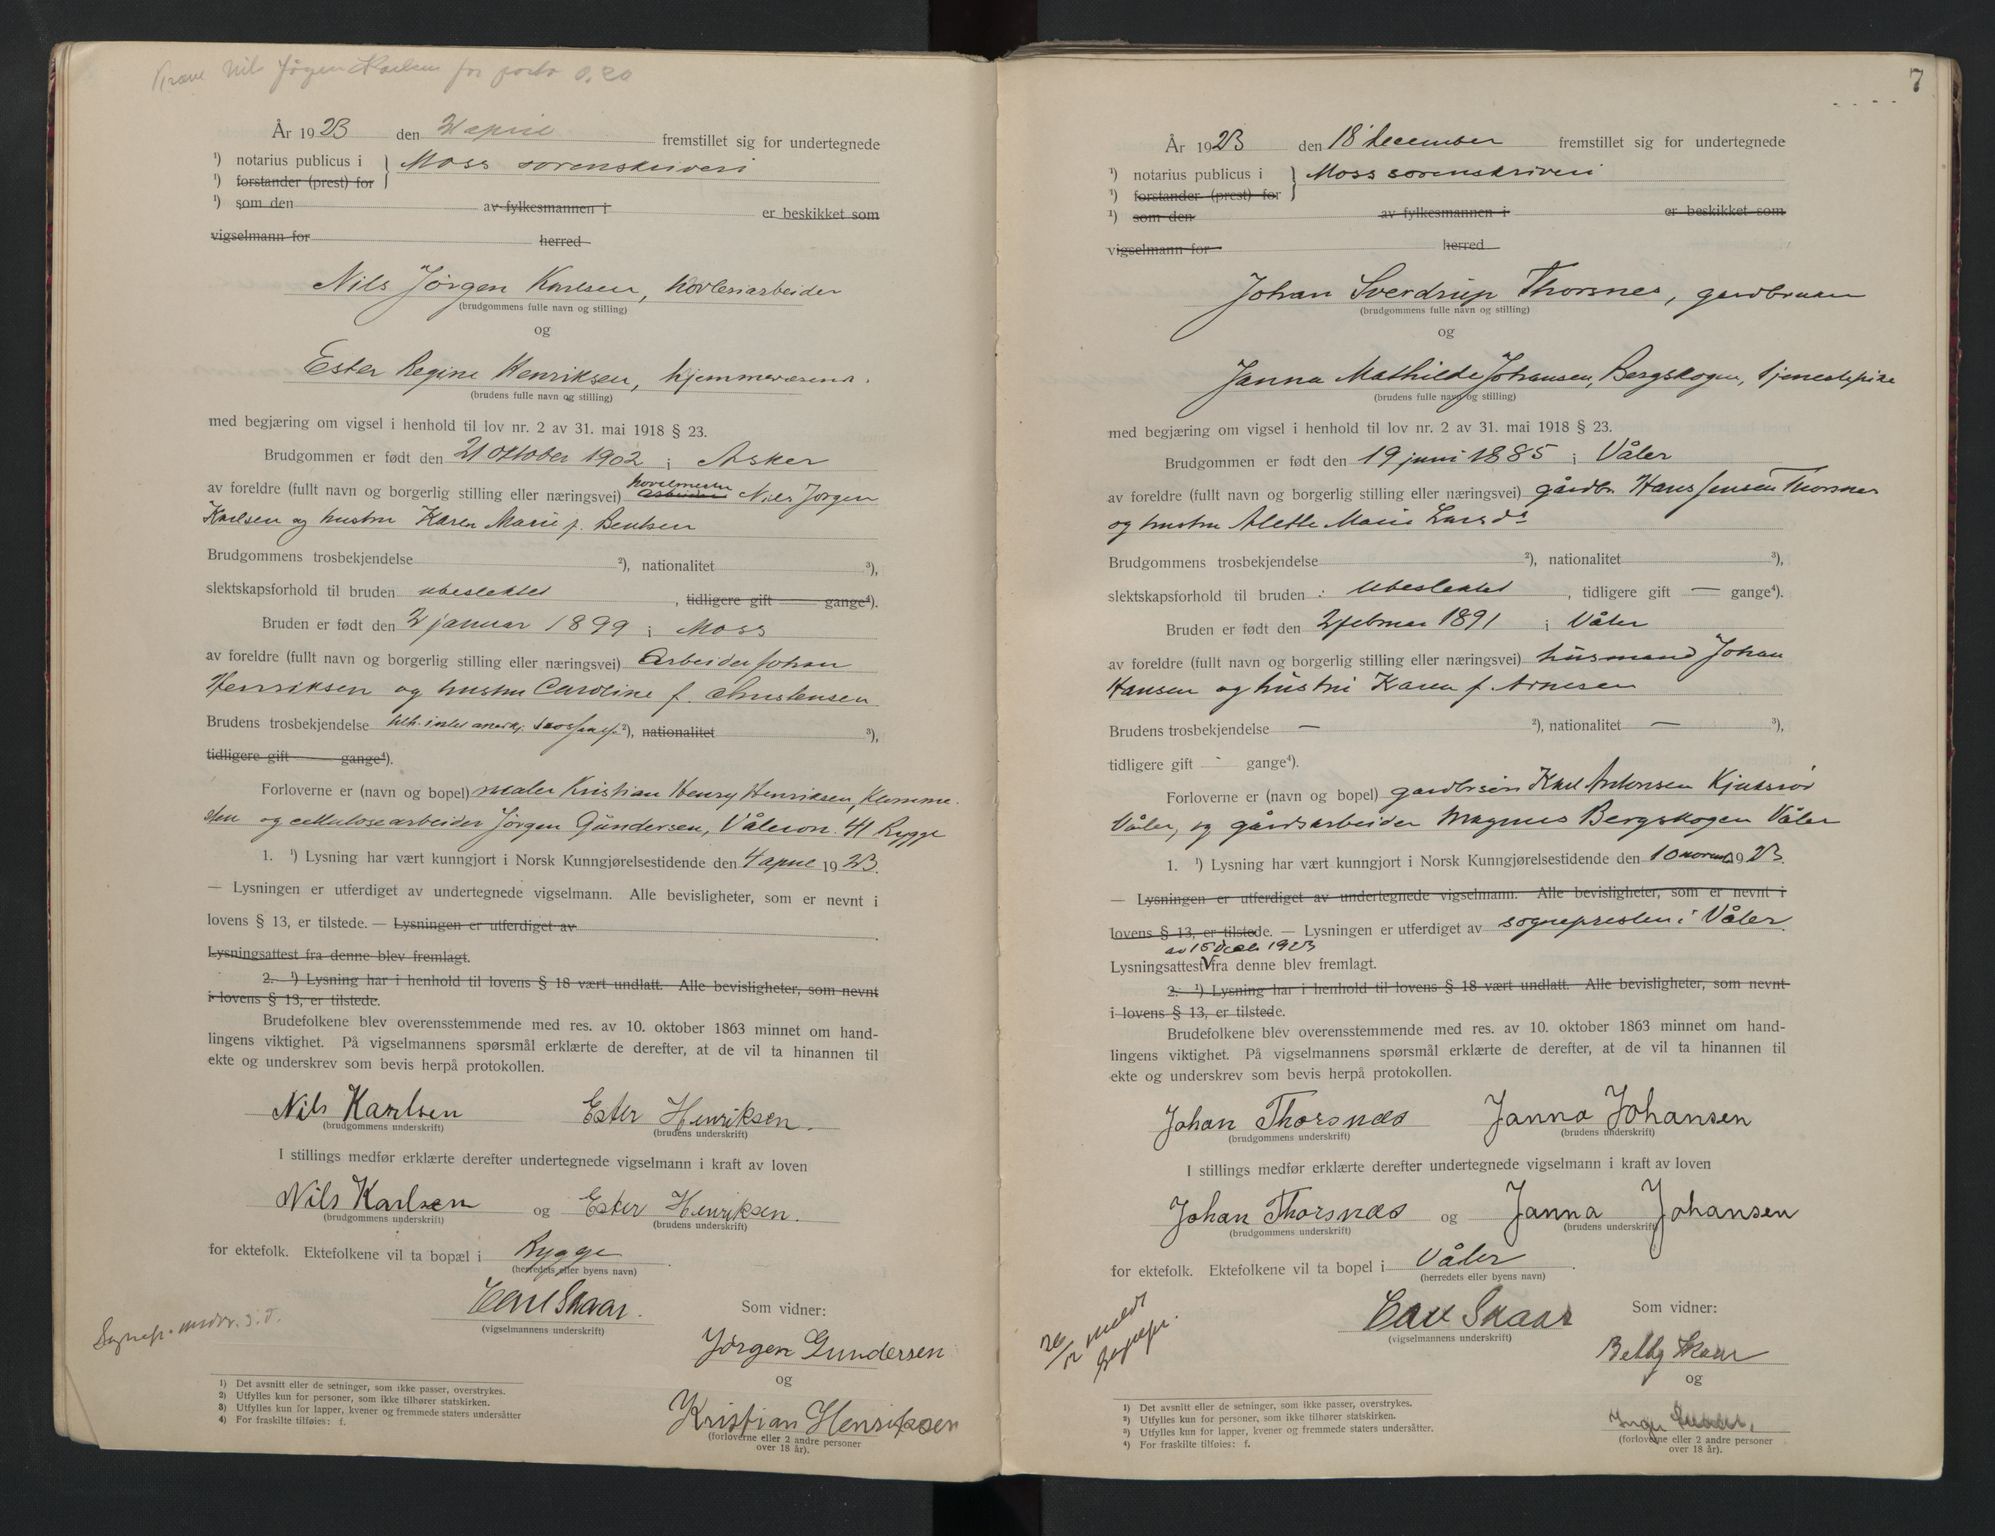 Nils Jörgen Karlsen for porto 0,20
År 1923 den 21 april fremstillet sig for undertegnede
¹) notarius publicus i } Moss sorenskriveri
¹) forstander (prest) for
¹) som den av fylkesmannen i er beskikket som
vigselmann for herred
Nils Jörgen Karlsen, høvleriarbeider
(brudgommens fulle navn og stilling)
og
Ester Regine Henriksen, hjemmeværende
(brudens fulle navn og stilling)
med begjæring om vigsel i henhold til lov nr. 2 av 31. mai 1918 § 23.
Brudgommen er født den 21 oktober 1902 i Asker
av foreldre (fullt navn og borgerlig stilling eller næringsvei) høvelmester arbeider Nils Jörgen
Karlsen og hustru Karen Marie f. Bentsen
Brudgommens trosbekjendelse ²), nationalitet ³),
slektskapsforhold til bruden ubeslektet, tidligere gift gange⁴).
Bruden er født den 2 januar 1899 i Moss
av foreldre (fullt navn og borgerlig stilling eller næringsvei) Arbeider Johan
Henriksen og hustru Caroline f. Christensen
Brudens trosbekjendelse ²), nationalitet ³),
tidligere gift gange⁴).
Forloverne er (navn og bopel) maler Kristian Henry Henriksen, Klomme-
sten og cellulosearbeider Jörgen Gundersen, Våleron. 41 Rygge
1. ¹) Lysning har vært kunngjort i Norsk Kunngjørelsestidende den 4 april 1923.
— Lysningen er utferdiget av undertegnede vigselmann. Alle bevisligheter, som er nevnt i
lovens § 13, er tilstede. — Lysningen er utferdiget av
Lysningsattest fra denne blev fremlagt.
2. ¹) Lysning har i henhold til lovens § 18 vært undlatt. Alle bevisligheter, som nevnt
i lovens § 13, er tilstede.
Brudefolkene blev overensstemmende med res. av 10. oktober 1863 minnet om hand-
lingens viktighet. På vigselmannens spørsmål erklærte de derefter, at de vil ta hinannen til
ekte og underskrev som bevis herpå protokollen.
Nils Karlsen Ester Henriksen.
(brudgommens underskrift) (brudens underskrift)
I stillings medfør erklærte derefter undertegnede vigselmann i kraft av loven
Nils Karlsen og Ester Henriksen.
(brudgommens underskrift) (brudens underskrift)
for ektefolk. Ektefolkene vil ta bopæl i Rygge.
(herredets eller byens navn)
Carl Skaar. Som vidner:
(vigselmannens underskrift)
Jörgen Gundersen
og
Kristian Henriksen
(forloverne eller 2 andre personer
over 18 år).
1) Det avsnitt eller de setninger, som ikke passer, overstrykes.
2) Utfylles kun for personer, som ikke tilhører statskirken.
3) Utfylles kun for lapper, kvener og fremmede staters undersåtter
4) For fraskilte tilføies: f.
7
År 1923 den 18 december fremstillet sig for undertegnede
¹) notarius publicus i } Moss sorenskriveri
¹) forstander (prest) for
¹) som den av fylkesmannen i er beskikket som
vigselmann for herred
Johan Sverdrup Thorsnes, gardbruker
(brudgommens fulle navn og stilling)
og
Janna Mathilde Johansen, Bergskogen, tjenestepike
(brudens fulle navn og stilling)
med begjæring om vigsel i henhold til lov nr. 2 av 31. mai 1918 § 23.
Brudgommen er født den 19 juni 1885 i Våler
av foreldre (fullt navn og borgerlig stilling eller næringsvei) gårdbr Hans Jensen Thorsnes
og hustru Alette Marie Larsdr
Brudgommens trosbekjendelse ²), nationalitet ³),
slektskapsforhold til bruden : ubeslektet, tidligere gift — gange⁴).
Bruden er født den 2 februar 1891 i Våler
av foreldre (fullt navn og borgerlig stilling eller næringsvei) husmand Johan
Hansen og hustru Karen f. Arnesen
Brudens trosbekjendelse — ²), nationalitet — ³),
tidligere gift - gange⁴).
Forloverne er (navn og bopel) gardbrsøn Karl Antonsen
Våler, og gårdsarbeider Magnus Bergskogen Våler
1. ¹) Lysning har vært kunngjort i Norsk Kunngjørelsestidende den 10 novem. 1923.
— Lysningen er utferdiget av undertegnede vigselmann. Alle bevisligheter, som er nevnt i
lovens § 13, er tilstede. — Lysningen er utferdiget av sognepresten i Våler.
av 15 Decb 1923
Lysningsattest fra denne blev fremlagt.
2. ¹) Lysning har i henhold til lovens § 18 vært undlatt. Alle bevisligheter, som nevnt
i lovens § 13, er tilstede.
Brudefolkene blev overensstemmende med res. av 10. oktober 1863 minnet om hand-
lingens viktighet. På vigselmannens spørsmål erklærte de derefter, at de vil ta hinannen til
ekte og underskrev som bevis herpå protokollen.
Johan Thorsnæs Janna Johansen
(brudgommens underskrift) (brudens underskrift)
I stillings medfør erklærte derefter undertegnede vigselmann i kraft av loven
Johan Thorsnæs og Janna Johansen
(brudgommens underskrift) (brudens underskrift)
for ektefolk. Ektefolkene vil ta bopel i Våler.
(herredets eller byens navn)
20/12 meldt sognepr.
Carl Skaar Som vidner:
(vigselmannens underskrift)
Betty Skaar
og
(forloverne eller 2 andre personer
over 18 år).
¹) Det avsnitt eller de setninger, som ikke passer, overstrykes.
²) Utfylles kun for personer, som ikke tilhører statskirken.
³) Utfylles kun for lapper, kvener og fremmede staters undersåtter.
⁴) For fraskilte tilføies: f.